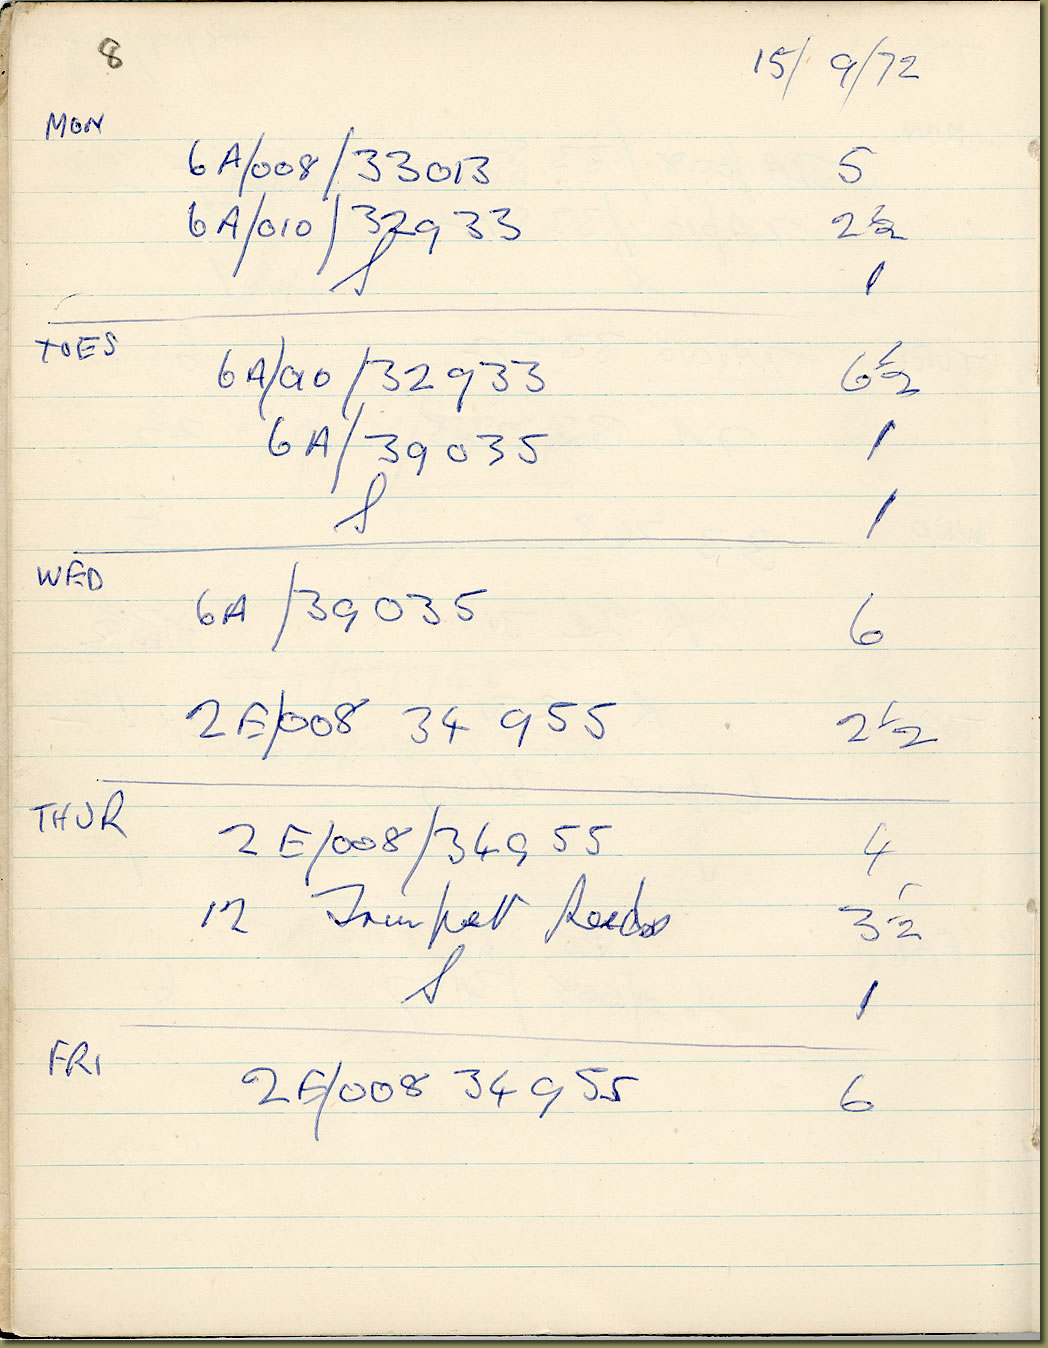 8 15/9/72
MON
6A/008/33013 5
6A/010/32933 2½
S 1
TUES
6A/010/32933 6½
6A/39035 1
S 1
WED
6A/39035 6
2E/008 34955 2½
THUR
2E/008/34955 4
12 Trumpet Reeds 3½
S 1
FRI
2E/008 34955 6